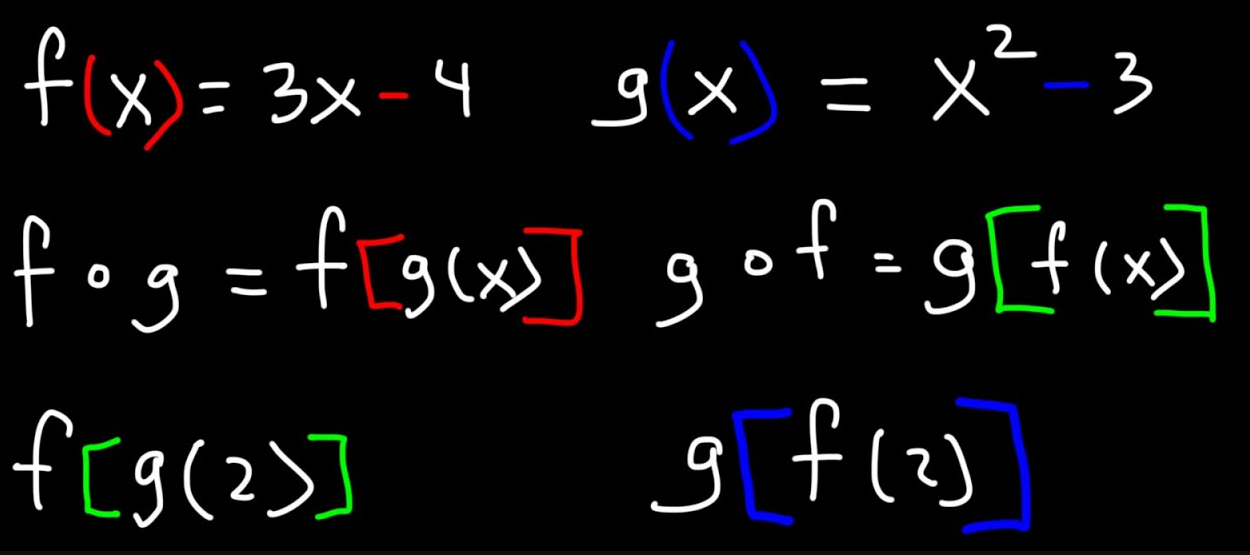 f(x) = 3x - 4 g(x) = x² - 3
f ∘ g = f[g(x)] g ∘ f = g[f(x)]
f[g(2)] g[f(2)]